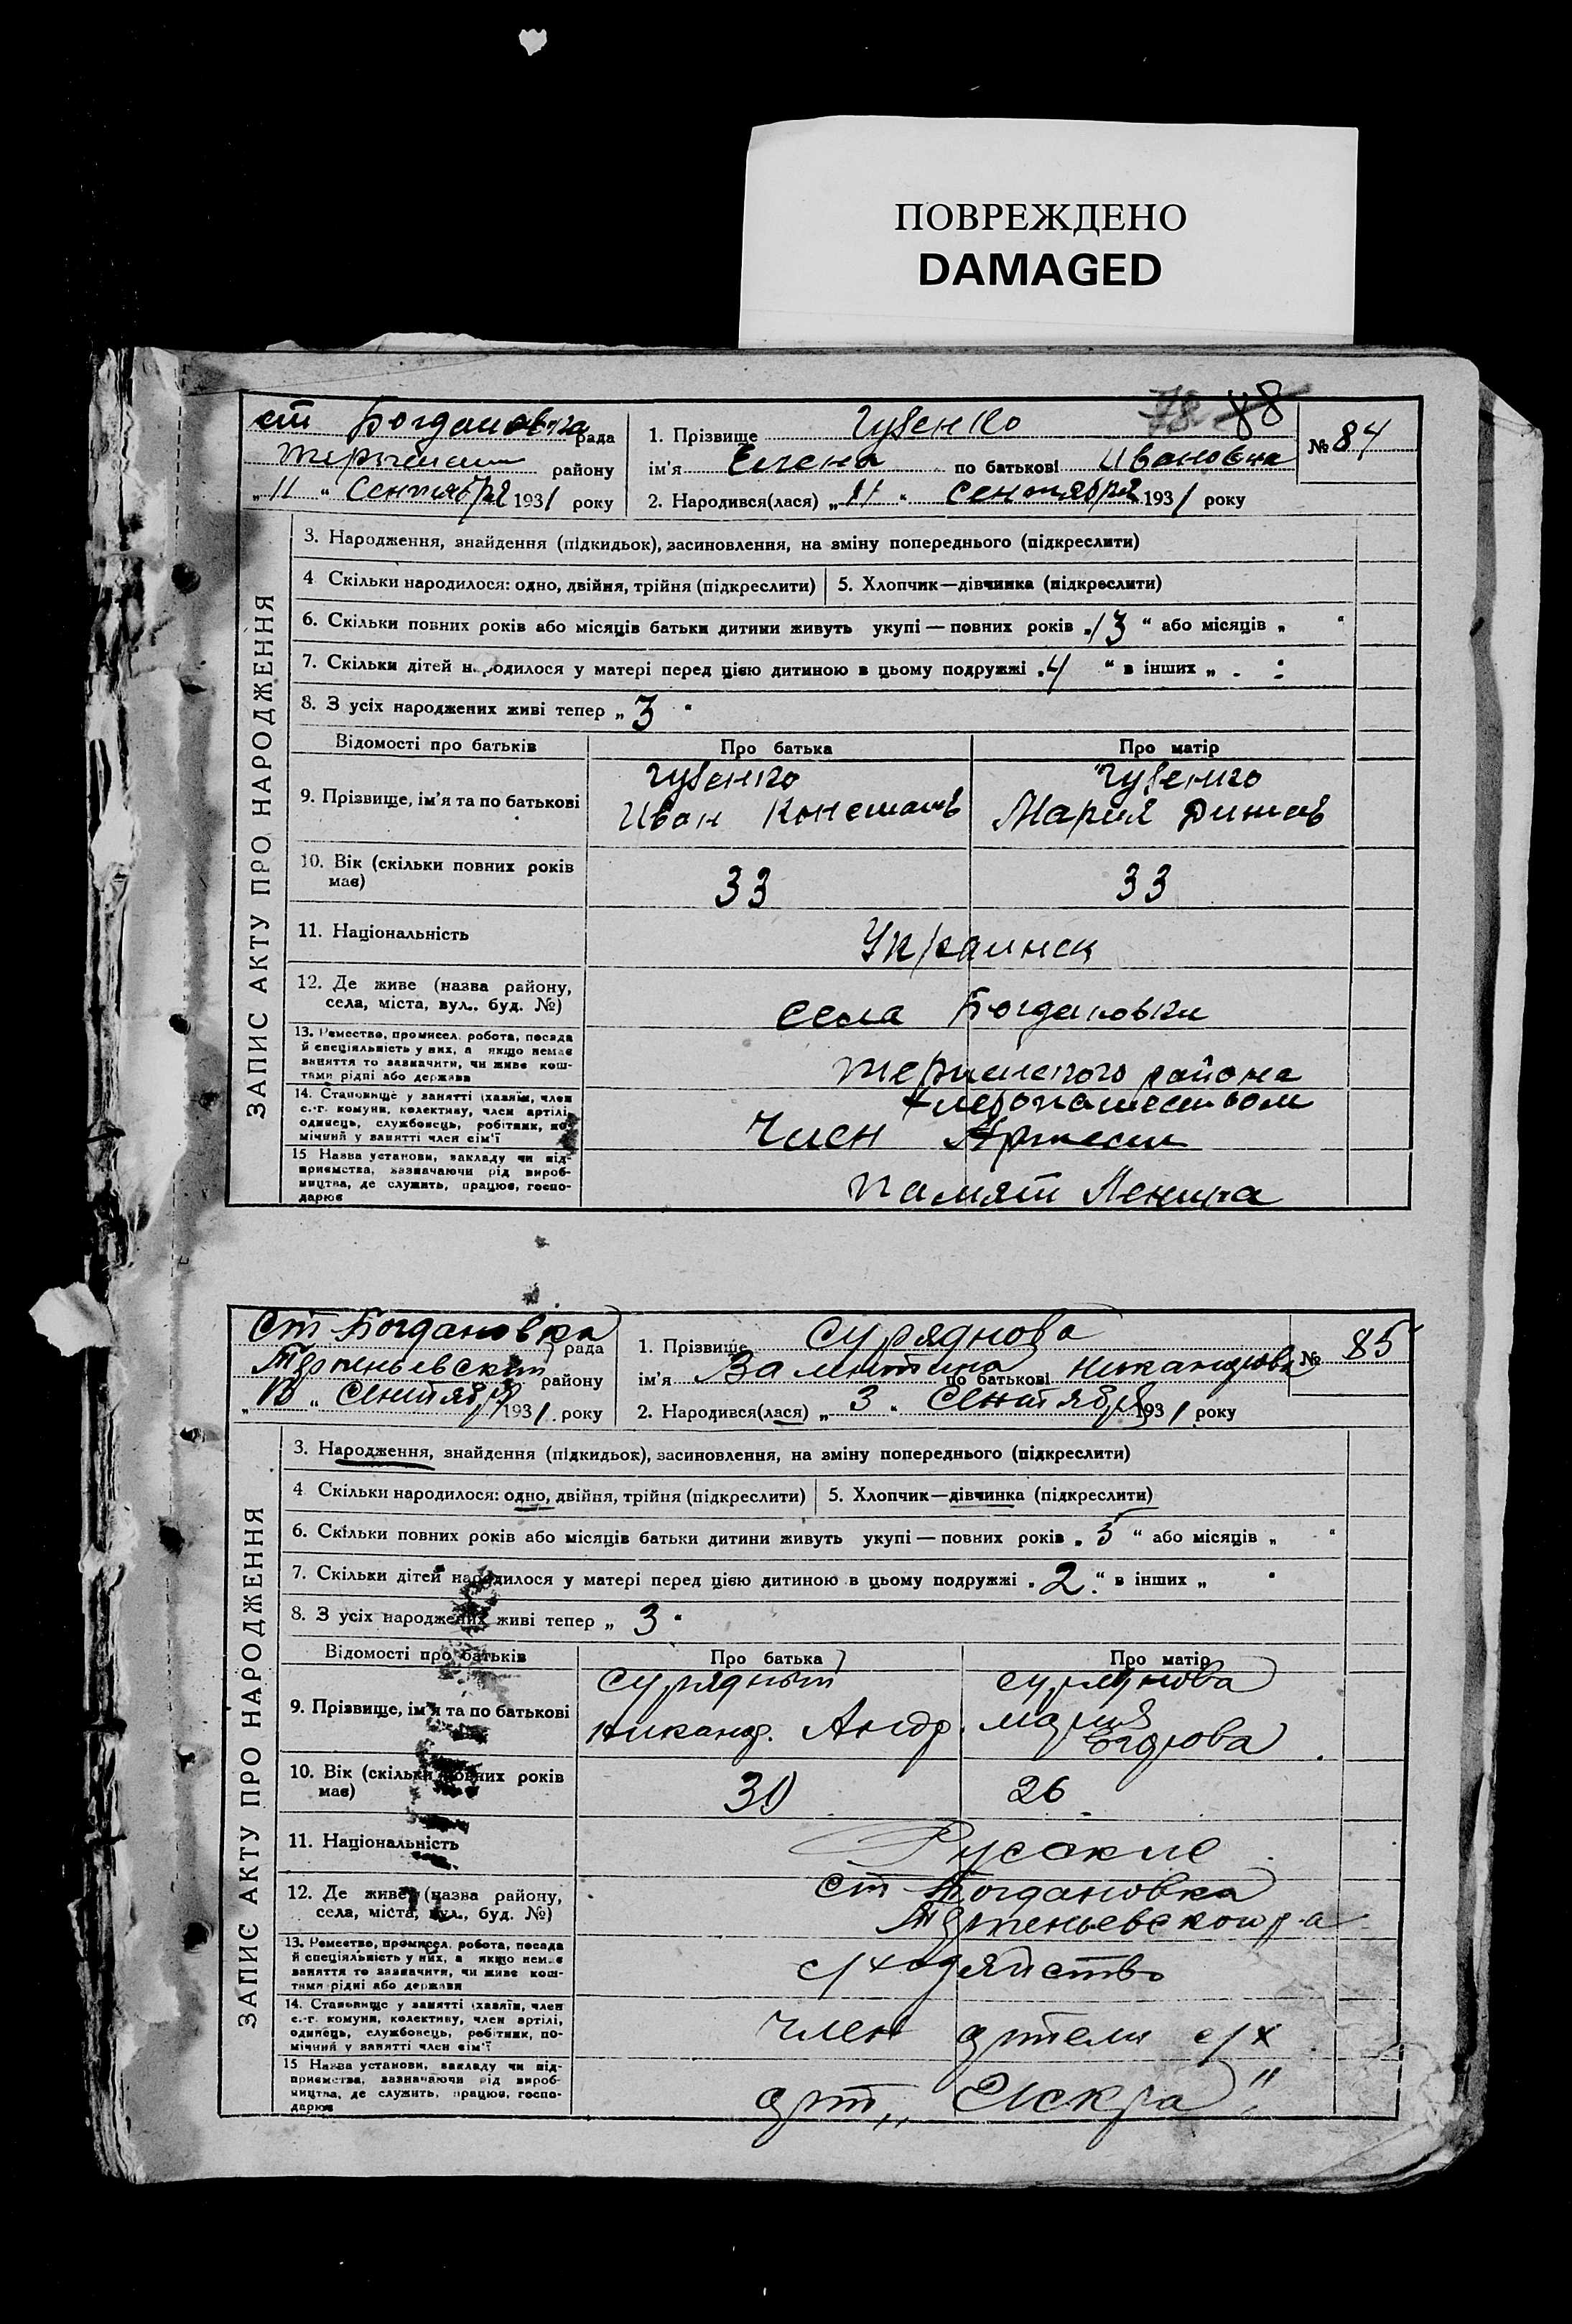 ПОВРЕЖДЕНО
DAMAGED
88
ст Богдановка рада
району
„ 11 “ Сентября 1931 року
1. Прізвище Губенко
ім'я Елена по батькові Ивановна
2. Народився(лася) „ 11 “ Сентября 1931 року
№ 84
ЗАПИС АКТУ ПРО НАРОДЖЕННЯ
3. Народження, знайдення (підкидьок), засиновлення, на зміну попереднього (підкреслити)
4 Скільки народилося: одно, двійня, трійня (підкреслити) 5. Хлопчик—дівчинка (підкреслити)
6. Скільки повних років або місяців батьки дитини живуть укупі — повних років „ 13 “ або місяців „ “
7. Скільки дітей народилося у матері перед цією дитиною в цьому подружжі „ 4 “ в інших „
8. З усіх народжених живі тепер „ 3 “
Відомості про батьків Про батька Про матір
9. Прізвище, ім'я та по батькові
Губенко Губенко
Иван Мария
10. Вік (скільки повних років має) 33 33
11. Національність Украинец
12. Де живе (назва району, села, міста, вул., буд. №)
села Богдановки
13. Ремество, промисел, робота, посада й спеціяльність у них, а якщо немає заняття то зазначити, чи живе коштами рідні або держави
района
хлебопашеством
14. Становище у занятті (хазяїн, член с.-г. комуни, колективу, член артілі, одинець, службовець, робітник, помічний у занятті член сім'ї
Член Артели
15 Назва установи, закладу чи підприємства, зазначаючи рід виробництва, де служить, працює, господарює
Памят Ленина
Ст Богдановка рада
Терпеньевский району
„ “ Сентября 1931 року
1. Прізвище Суряднова
ім'я Валентина по батькові Никандровн
2. Народився(лася) „ 3 “ Сентября 1931 року
№ 85
ЗАПИС АКТУ ПРО НАРОДЖЕННЯ
3. Народження, знайдення (підкидьок), засиновлення, на зміну попереднього (підкреслити)
4 Скільки народилося: одно, двійня, трійня (підкреслити) 5. Хлопчик—дівчинка (підкреслити)
6. Скільки повних років або місяців батьки дитини живуть укупі — повних років „ 5 “ або місяців „ “
7. Скільки дітей народилося у матері перед цією дитиною в цьому подружжі „ 2 “ в інших „ “
8. З усіх народжених живі тепер „ 3 “
Відомості про батьків Про батька Про матір
9. Прізвище, ім'я та по батькові
Суряднова
Никанд. Андр. мария
10. Вік (скільки повних років має) 30 26
11. Національність Русские
12. Де живе (назва району, села, міста, вул., буд. №)
Ст Богдановка
Терпеньевского р-а
13. Ремество, промисел, робота, посада й спеціяльність у них, а якщо немає заняття то зазначити, чи живе коштами рідні або держави
с/хозяйство
14. Становище у занятті (хазяїн, член с.-г. комуни, колективу, член артілі, одинець, службовець, робітник, помічний у занятті член сім'ї
член артели с/х
15 Назва установи, закладу чи підприємства, зазначаючи рід виробництва, де служить, працює, господарює
арт „Искра“